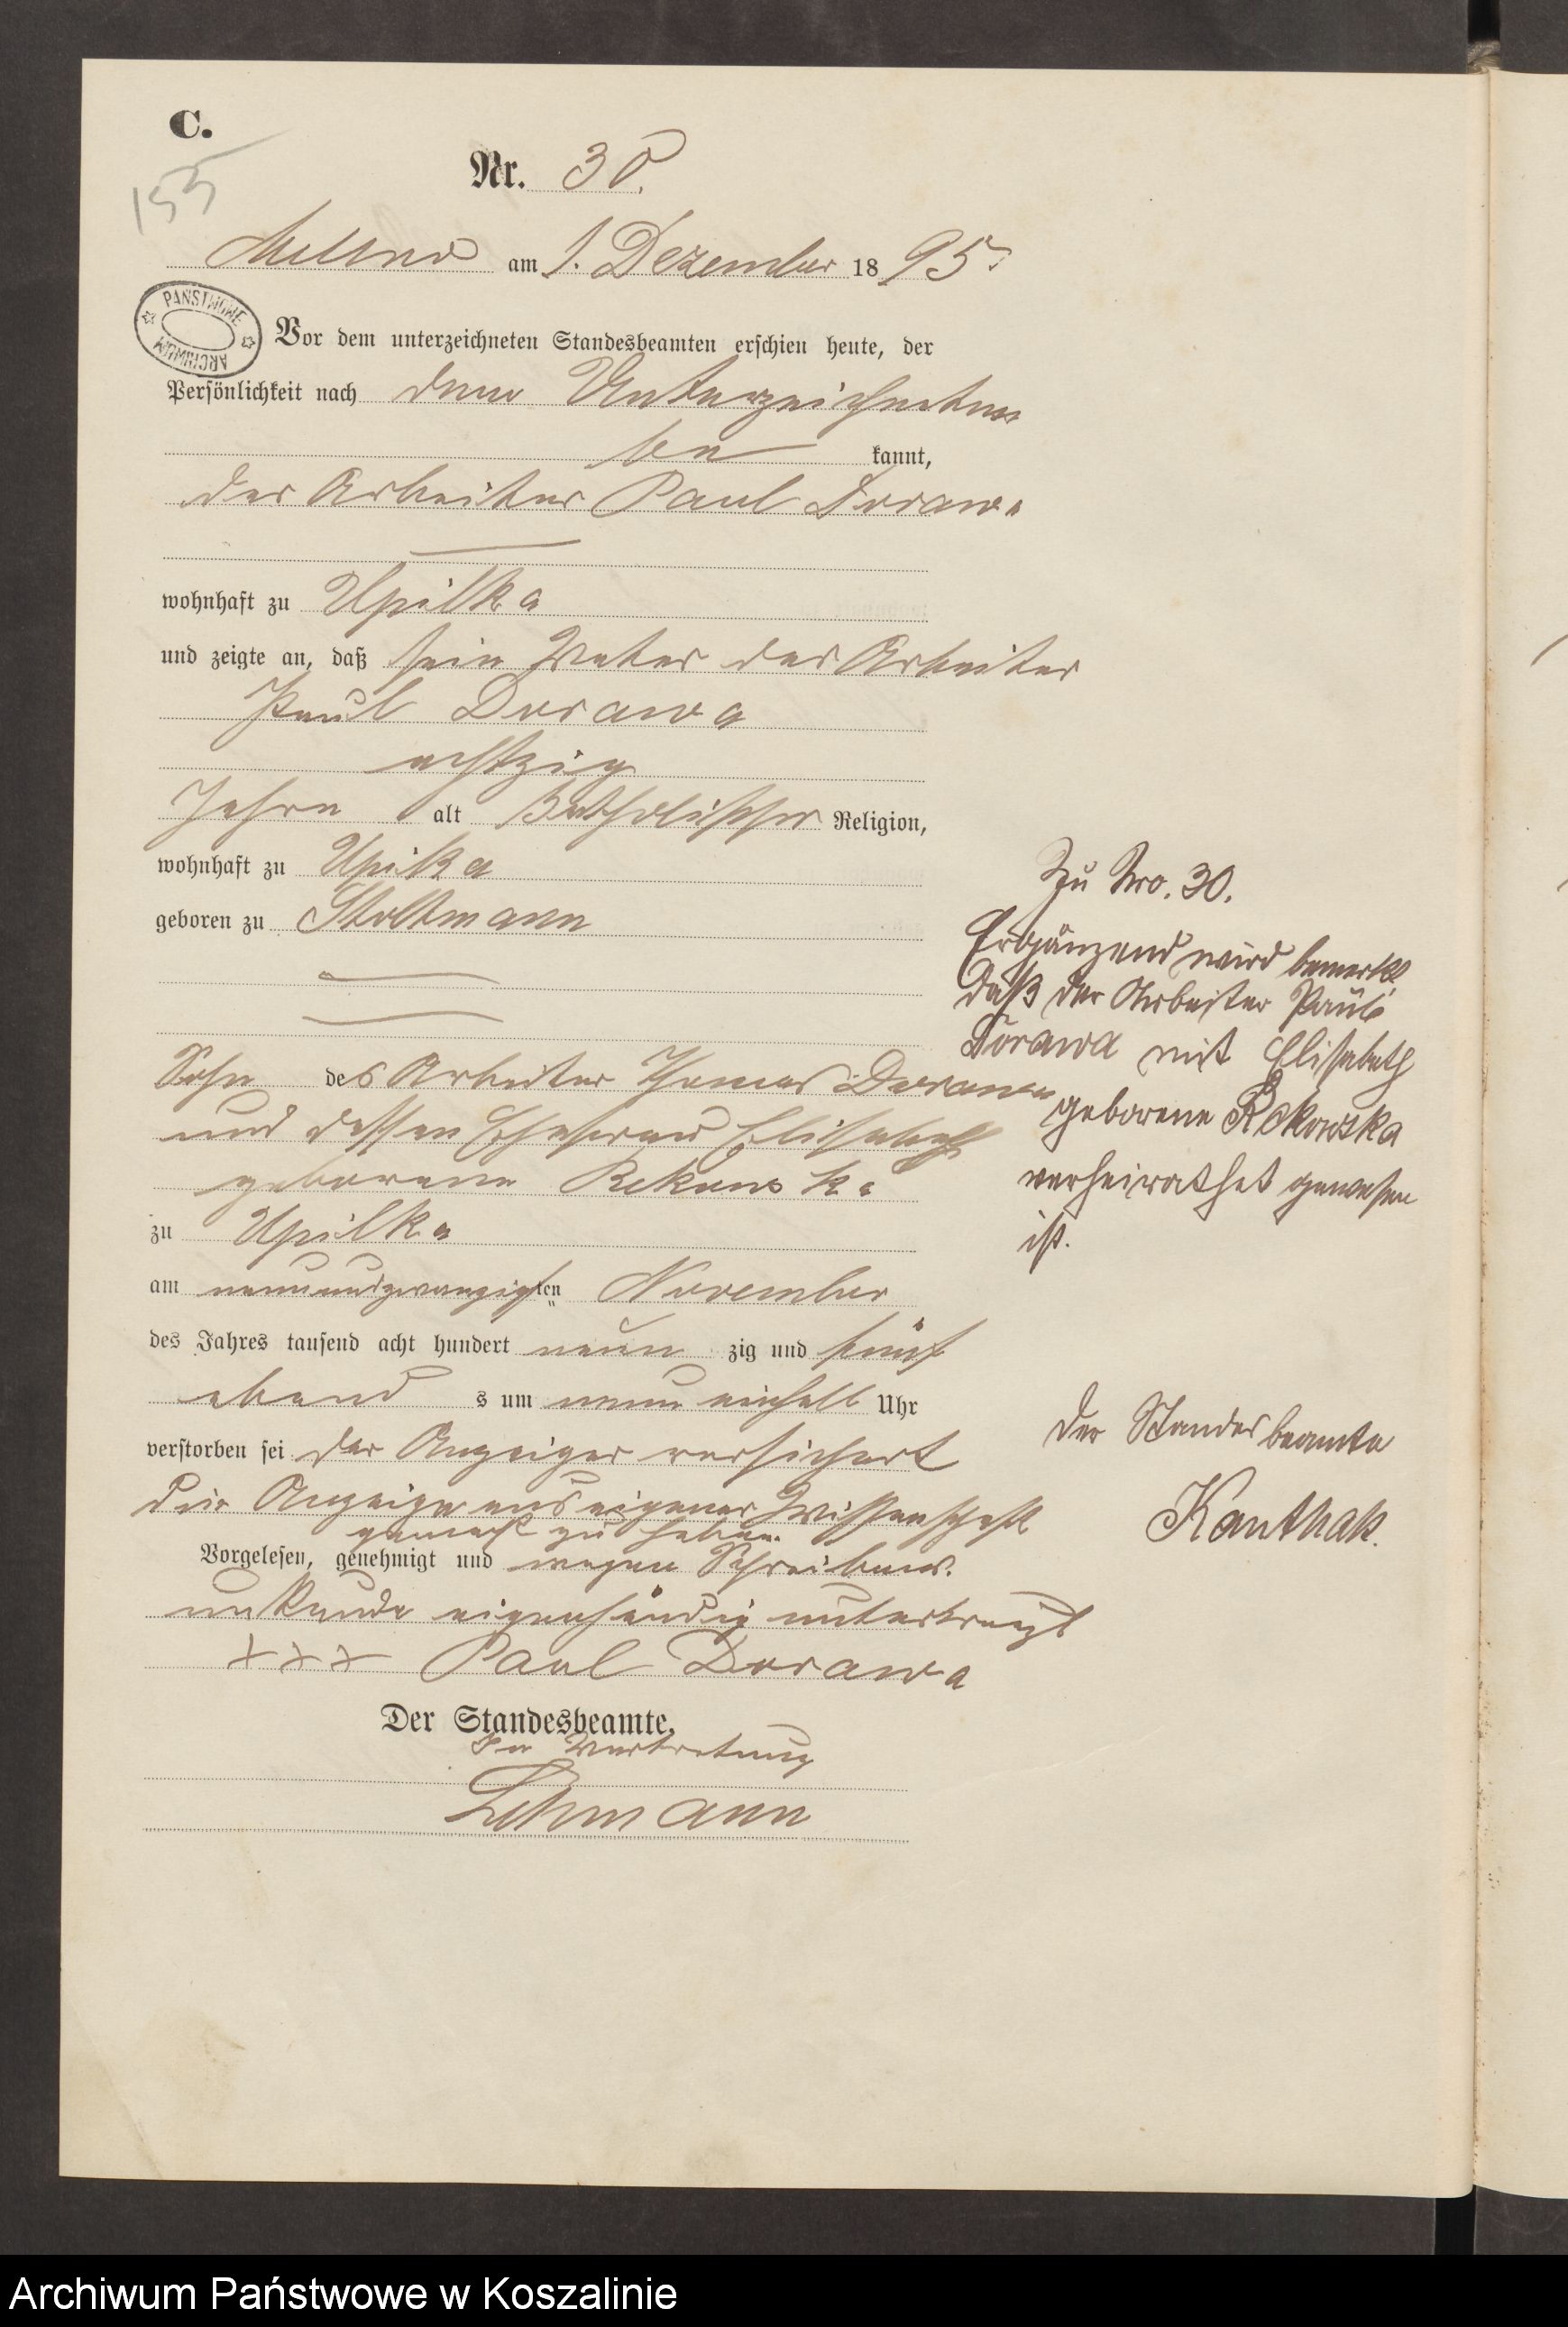 C.
155
Nr. 30.
Mellno am 1. Dezember 1895.
PAŃSTWOWE ARCHIWUM
Vor dem unterzeichneten Standesbeamten erschien heute, der
Persönlichkeit nach dem Unterzeichneten
be kannt,
der Arbeiter Paul Dorawa
wohnhaft zu Upilka
und zeigte an, daß sein Vater der Arbeiter
Paul Dorawa
achtzig
Jahre alt katholischer Religion,
wohnhaft zu Upilka
geboren zu Stoltmann
Sohn des Arbeiter Thomas Dorawa
und dessen Ehefrau Elisabeth
geborene Rekowska
zu Upilka
am neunundzwanzigsten November
des Jahres tausend acht hundert neun zig und fünf
abend s um neun einhalb Uhr
verstorben sei der Anzeiger versichert
die Anzeige aus eigener Wissenschaft
gemacht zu haben.
Vorgelesen, genehmigt und wegen Schreibens.
unkunde eigenhändig unterkreuzt
+++ Paul Dorawa
Der Standesbeamte.
In Vertretung
Lehmann
Zu Nro. 30.
Ergänzend wird bemerkt
daß der Arbeiter Paul
Dorawa mit Elisabeth
geborene Rekowska
verheirathet gewesen
ist.
Der Standesbeamte
Kanthak.
Archiwum Państwowe w Koszalinie